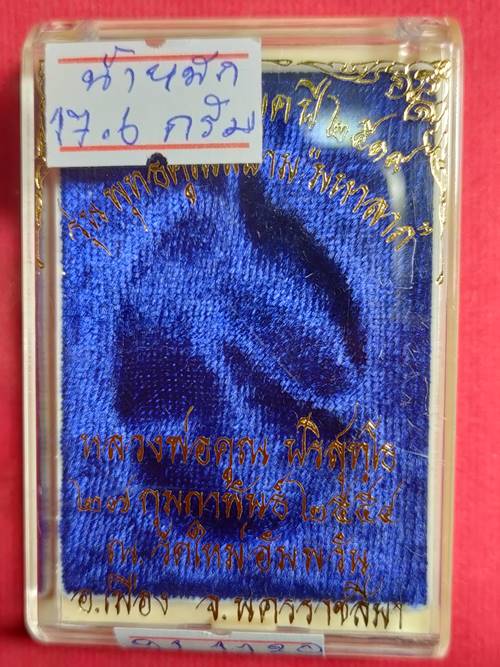 น้ำหนัก
17.6 กรัม
รุ่น พุทธคูณสยาม มหาลาภ
หลวงพ่อคูณ ปริสุทฺโธ
๒๗ กุมภาพันธ์ ๒๕๕๔
ณ. วัดใหม่อัมพวัน
อ.เมือง จ.นครราชสีมา